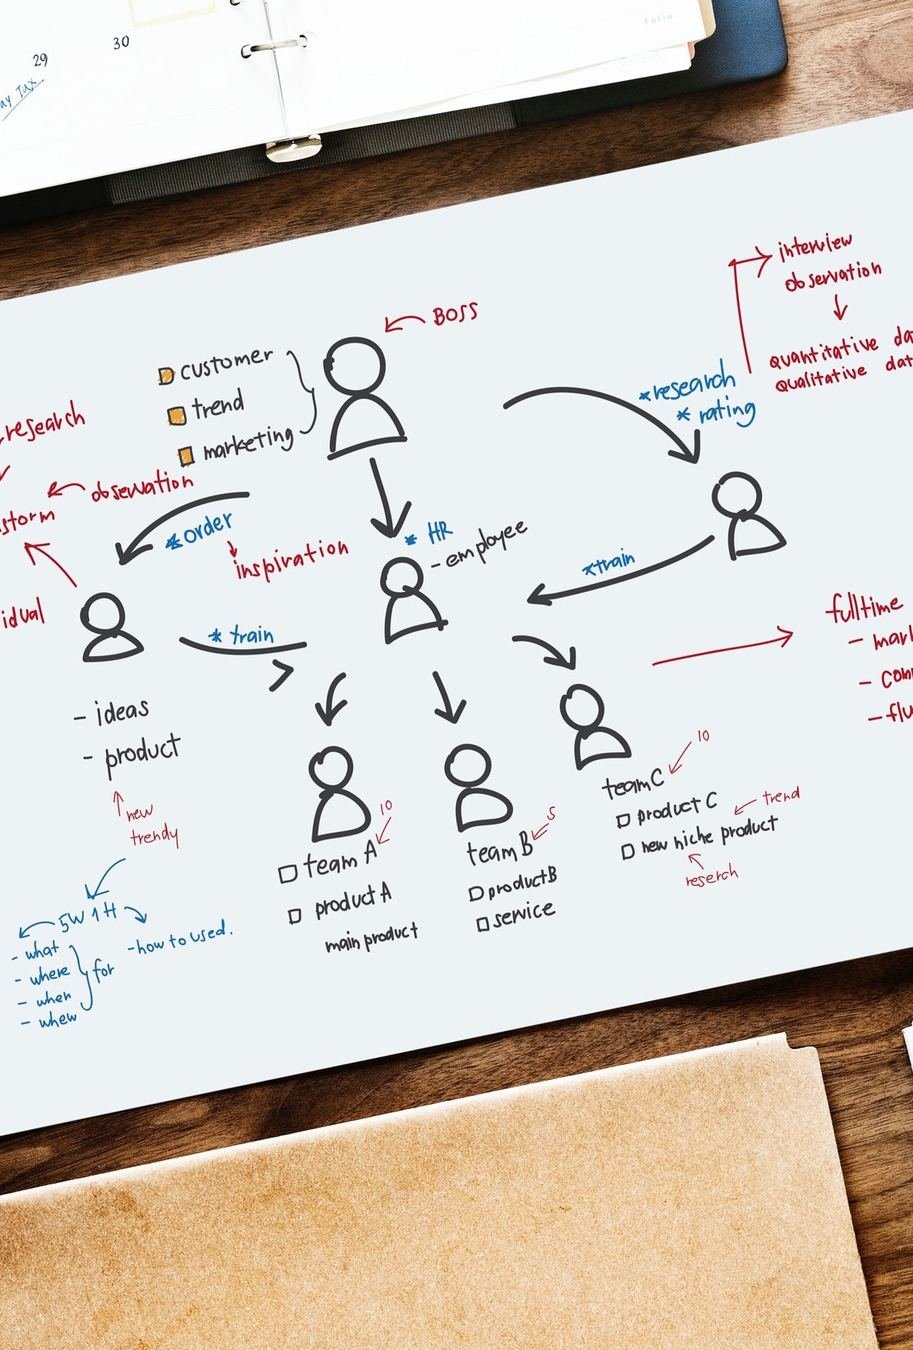 29
30
Folio
BOSS
customer
trend
marketing
interview
observation
quantitative
qualitative
*research
* rating
research
observation
* order
inspiration
* HR
- employee
*train
* train
- ideas
- product
new
trendy
5W 1H
- what
- where
- when
- whew
for
-how to used.
10
team A
product A
main product
5
team B
productB
service
10
teamC
product C
trend
new niche product
reserch
fulltime